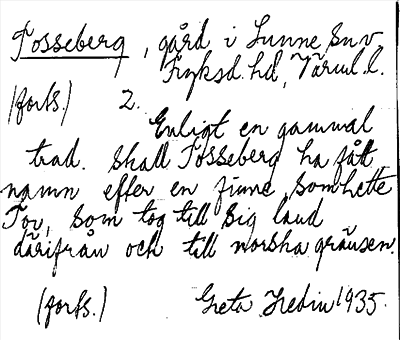 Tosseberg, gård i Sunne sn
Fryksd. hd, Värml. l.
(forts.) 2.
Enligt en gammal
trad. skall Tosseberg ha fått
namn efter en finne, som hette
Tov, som tog till sig land
därifrån och till norska gränsen.
(forts.) Greta Hedin 1935.